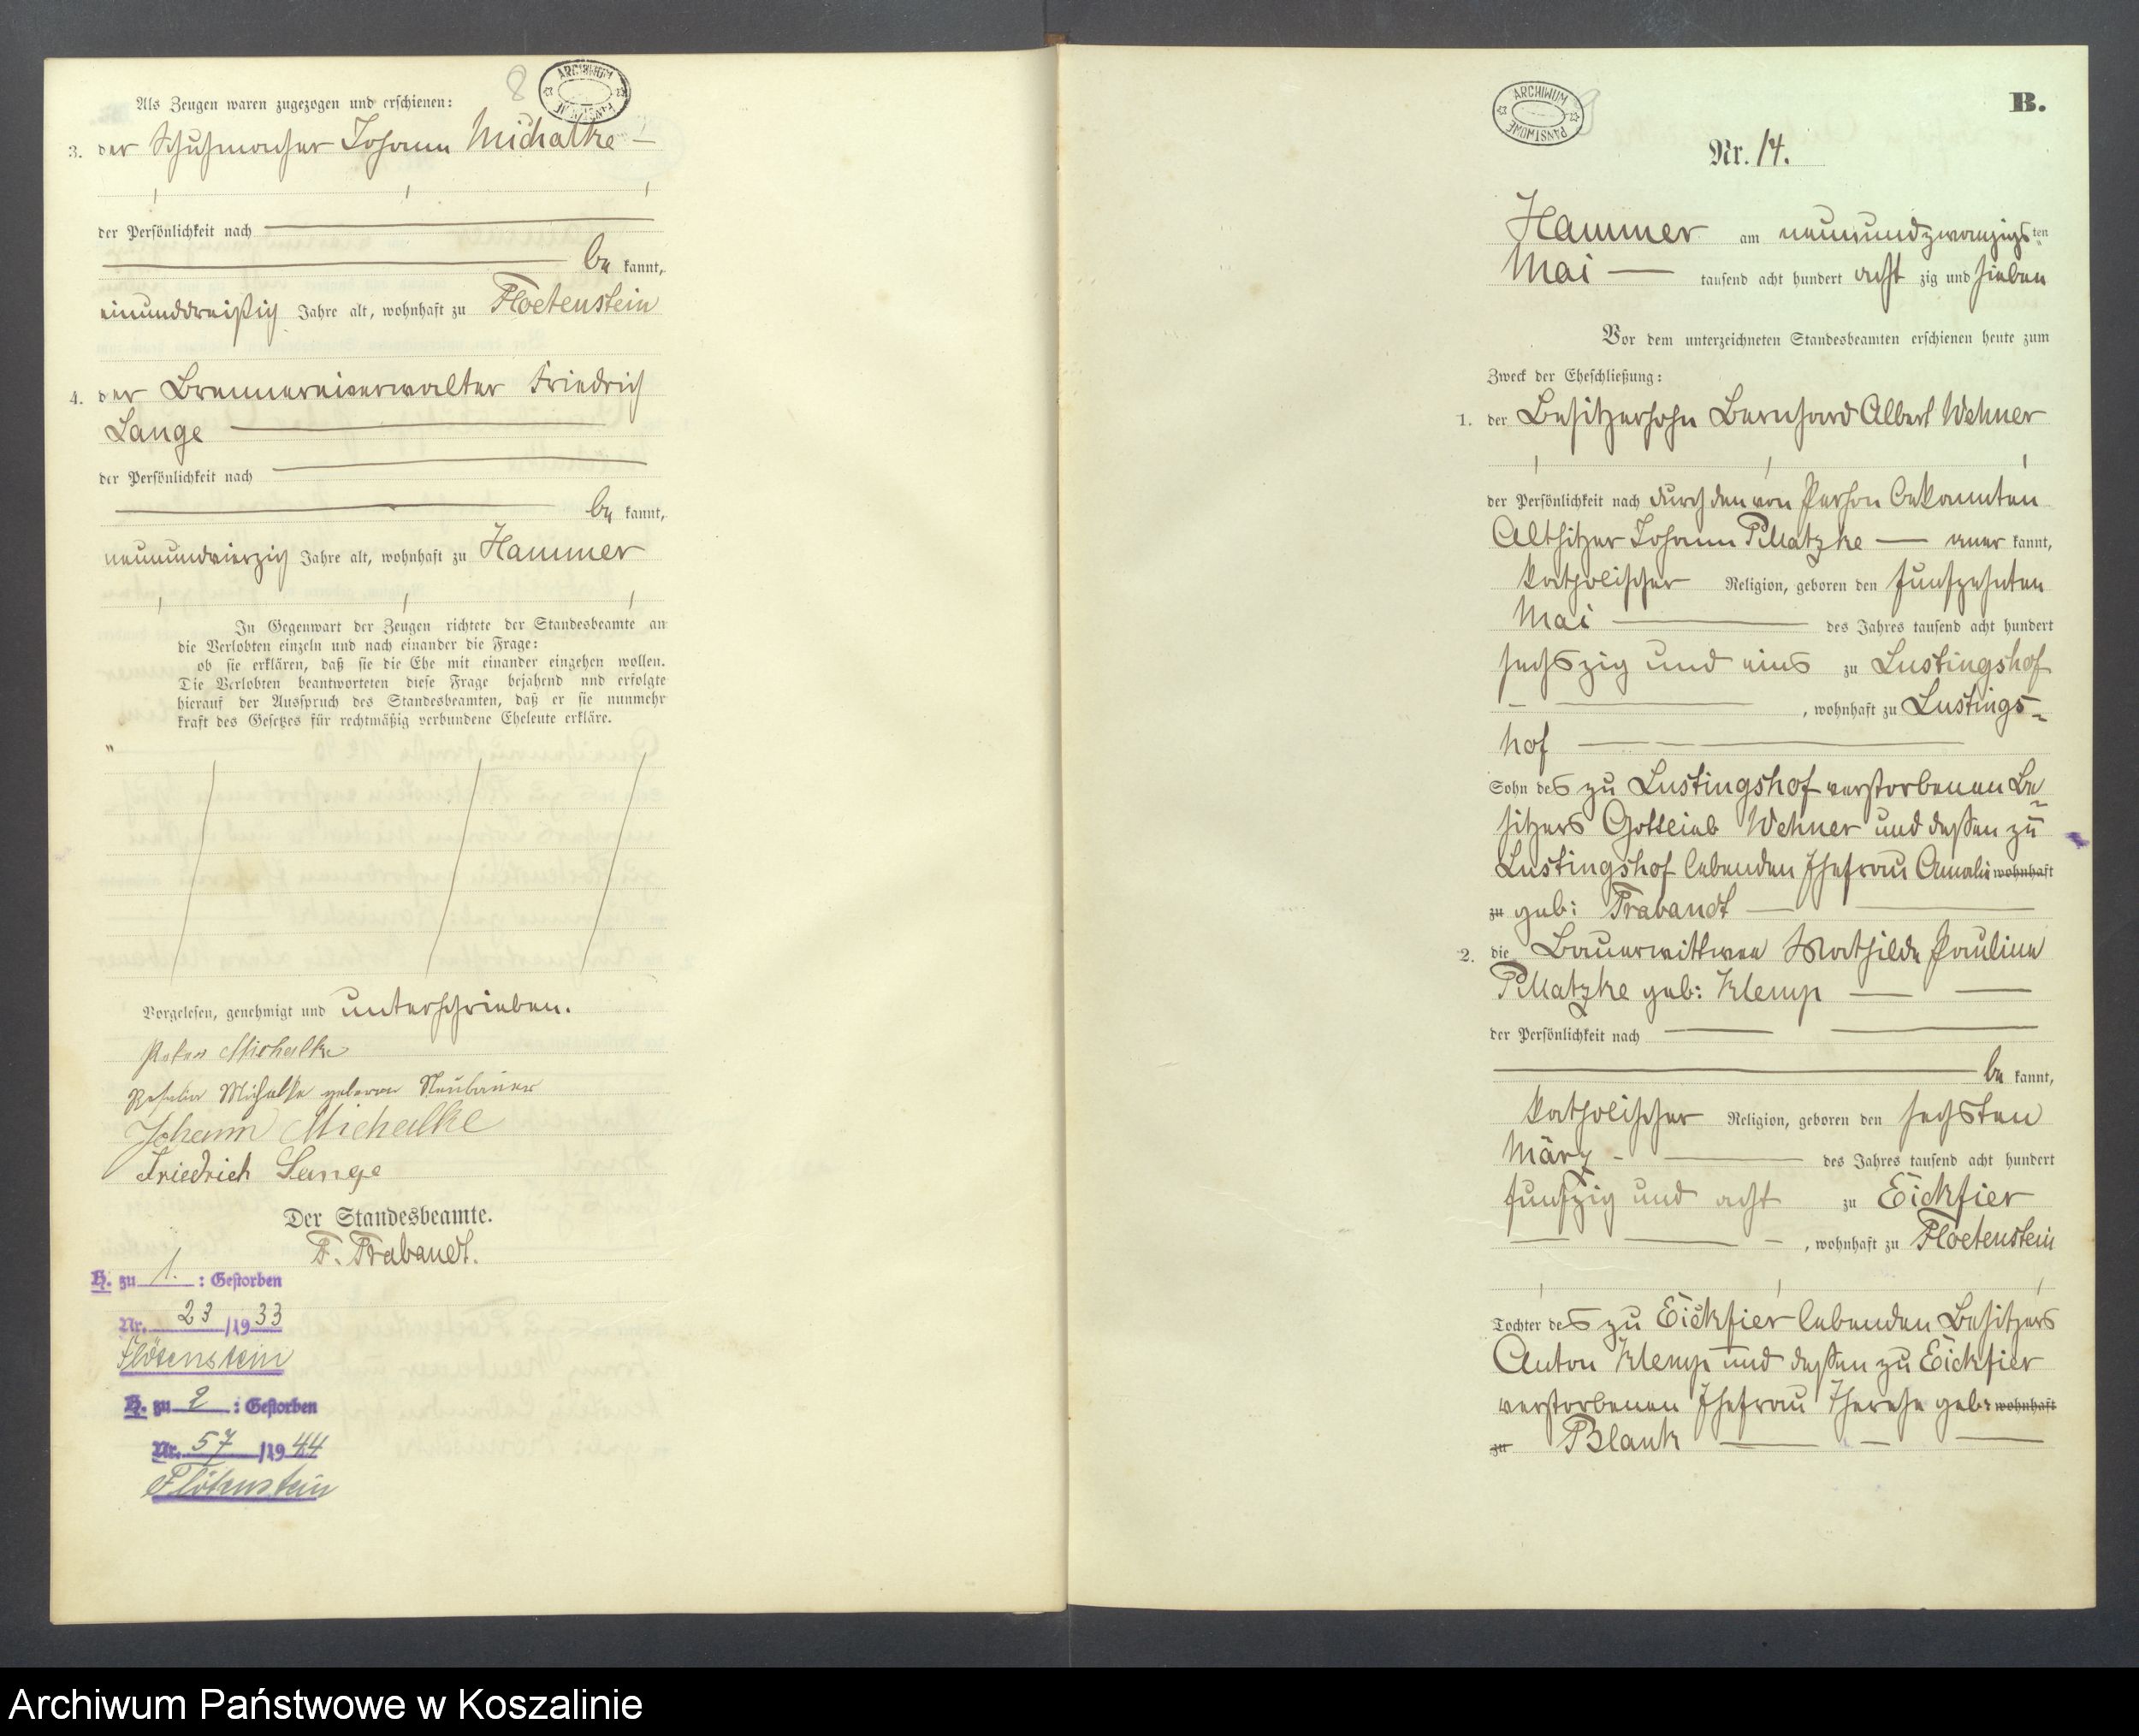 8
ARCHIWUM PAŃSTWOWE
Als Zeugen waren zugezogen und erschienen:
3. der Schuhmacher Johann Michalke —
der Persönlichkeit nach
be kannt,
einunddreißig Jahre alt, wohnhaft zu Floetenstein
4. der Brennereiverwalter Friedrich
Lange
der Persönlichkeit nach
be kannt,
neunundvierzig Jahre alt, wohnhaft zu Hammer
In Gegenwart der Zeugen richtete der Standesbeamte an
die Verlobten einzeln und nach einander die Frage:
ob sie erklären, daß sie die Ehe mit einander eingehen wollen.
Die Verlobten beantworteten diese Frage bejahend und erfolgte
hierauf der Ausspruch des Standesbeamten, daß er sie nunmehr
kraft des Gesetzes für rechtmäßig verbundene Eheleute erkläre.
Vorgelesen, genehmigt und unterschrieben.
Michalke
Michalke geborene Neubauer
Johann Michalke
Friedrich Lange
Der Standesbeamte.
F. Trabandt.
H. zu 1. : Gestorben
Nr. 23 /1933
Flötenstein
H. zu 2 : Gestorben
Nr. 57 /1944
Flötenstein
ARCHIWUM PAŃSTWOWE
B.
Nr. 14.
Hammer am neunundzwanzigsten
Mai — tausend acht hundert acht zig und sieben
Vor dem unterzeichneten Standesbeamten erschienen heute zum
Zweck der Eheschließung:
1. der Besitzersohn Bernhard Albert Wehner
der Persönlichkeit nach durch den von Person bekannten
Altsitzer Johann Pillatzke — aner kannt,
katholischer Religion, geboren den funfzehnten
Mai — des Jahres tausend acht hundert
sechszig und eins zu Lustingshof
, wohnhaft zu Lustings-
hof
Sohn des zu Lustingshof verstorbenen Be-
sitzers Gottlieb Wehner und dessen zu
Lustingshof lebenden Ehefrau Amalie wohnhaft
zu geb: Trabandt
2. die Bauerwittwe Mathilde Pauline
Pillatzke geb: Klemp
der Persönlichkeit nach
be kannt,
katholischer Religion, geboren den sechsten
März — des Jahres tausend acht hundert
funfzig und acht zu Eickfier
, wohnhaft zu Floetenstein
Tochter des zu Eickfier lebenden Besitzers
Anton Klemp und dessen zu Eickfier
verstorbenen Ehefrau Therese geb: wohnhaft
zu Blank
Archiwum Państwowe w Koszalinie